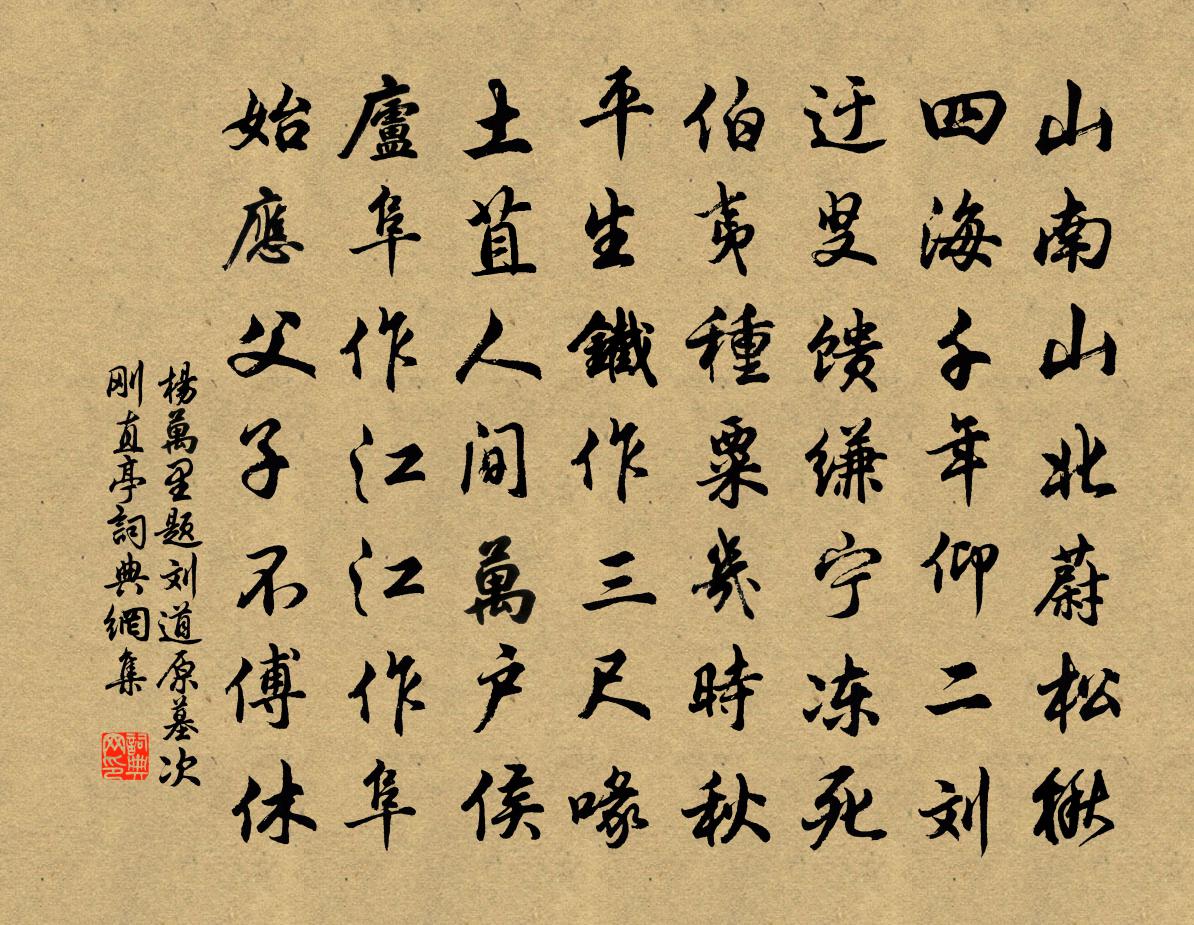 山南山北蔚松楸
四海千年仰二刘
迂叟馈缣宁冻死
伯夷種粟幾時秋
平生鐵作三尺喙
土苴人間萬户侯
廬阜作江江作阜
始應父子不傅休
楊萬里题刘道原墓次
刚直亭詞典網集
詞典网印